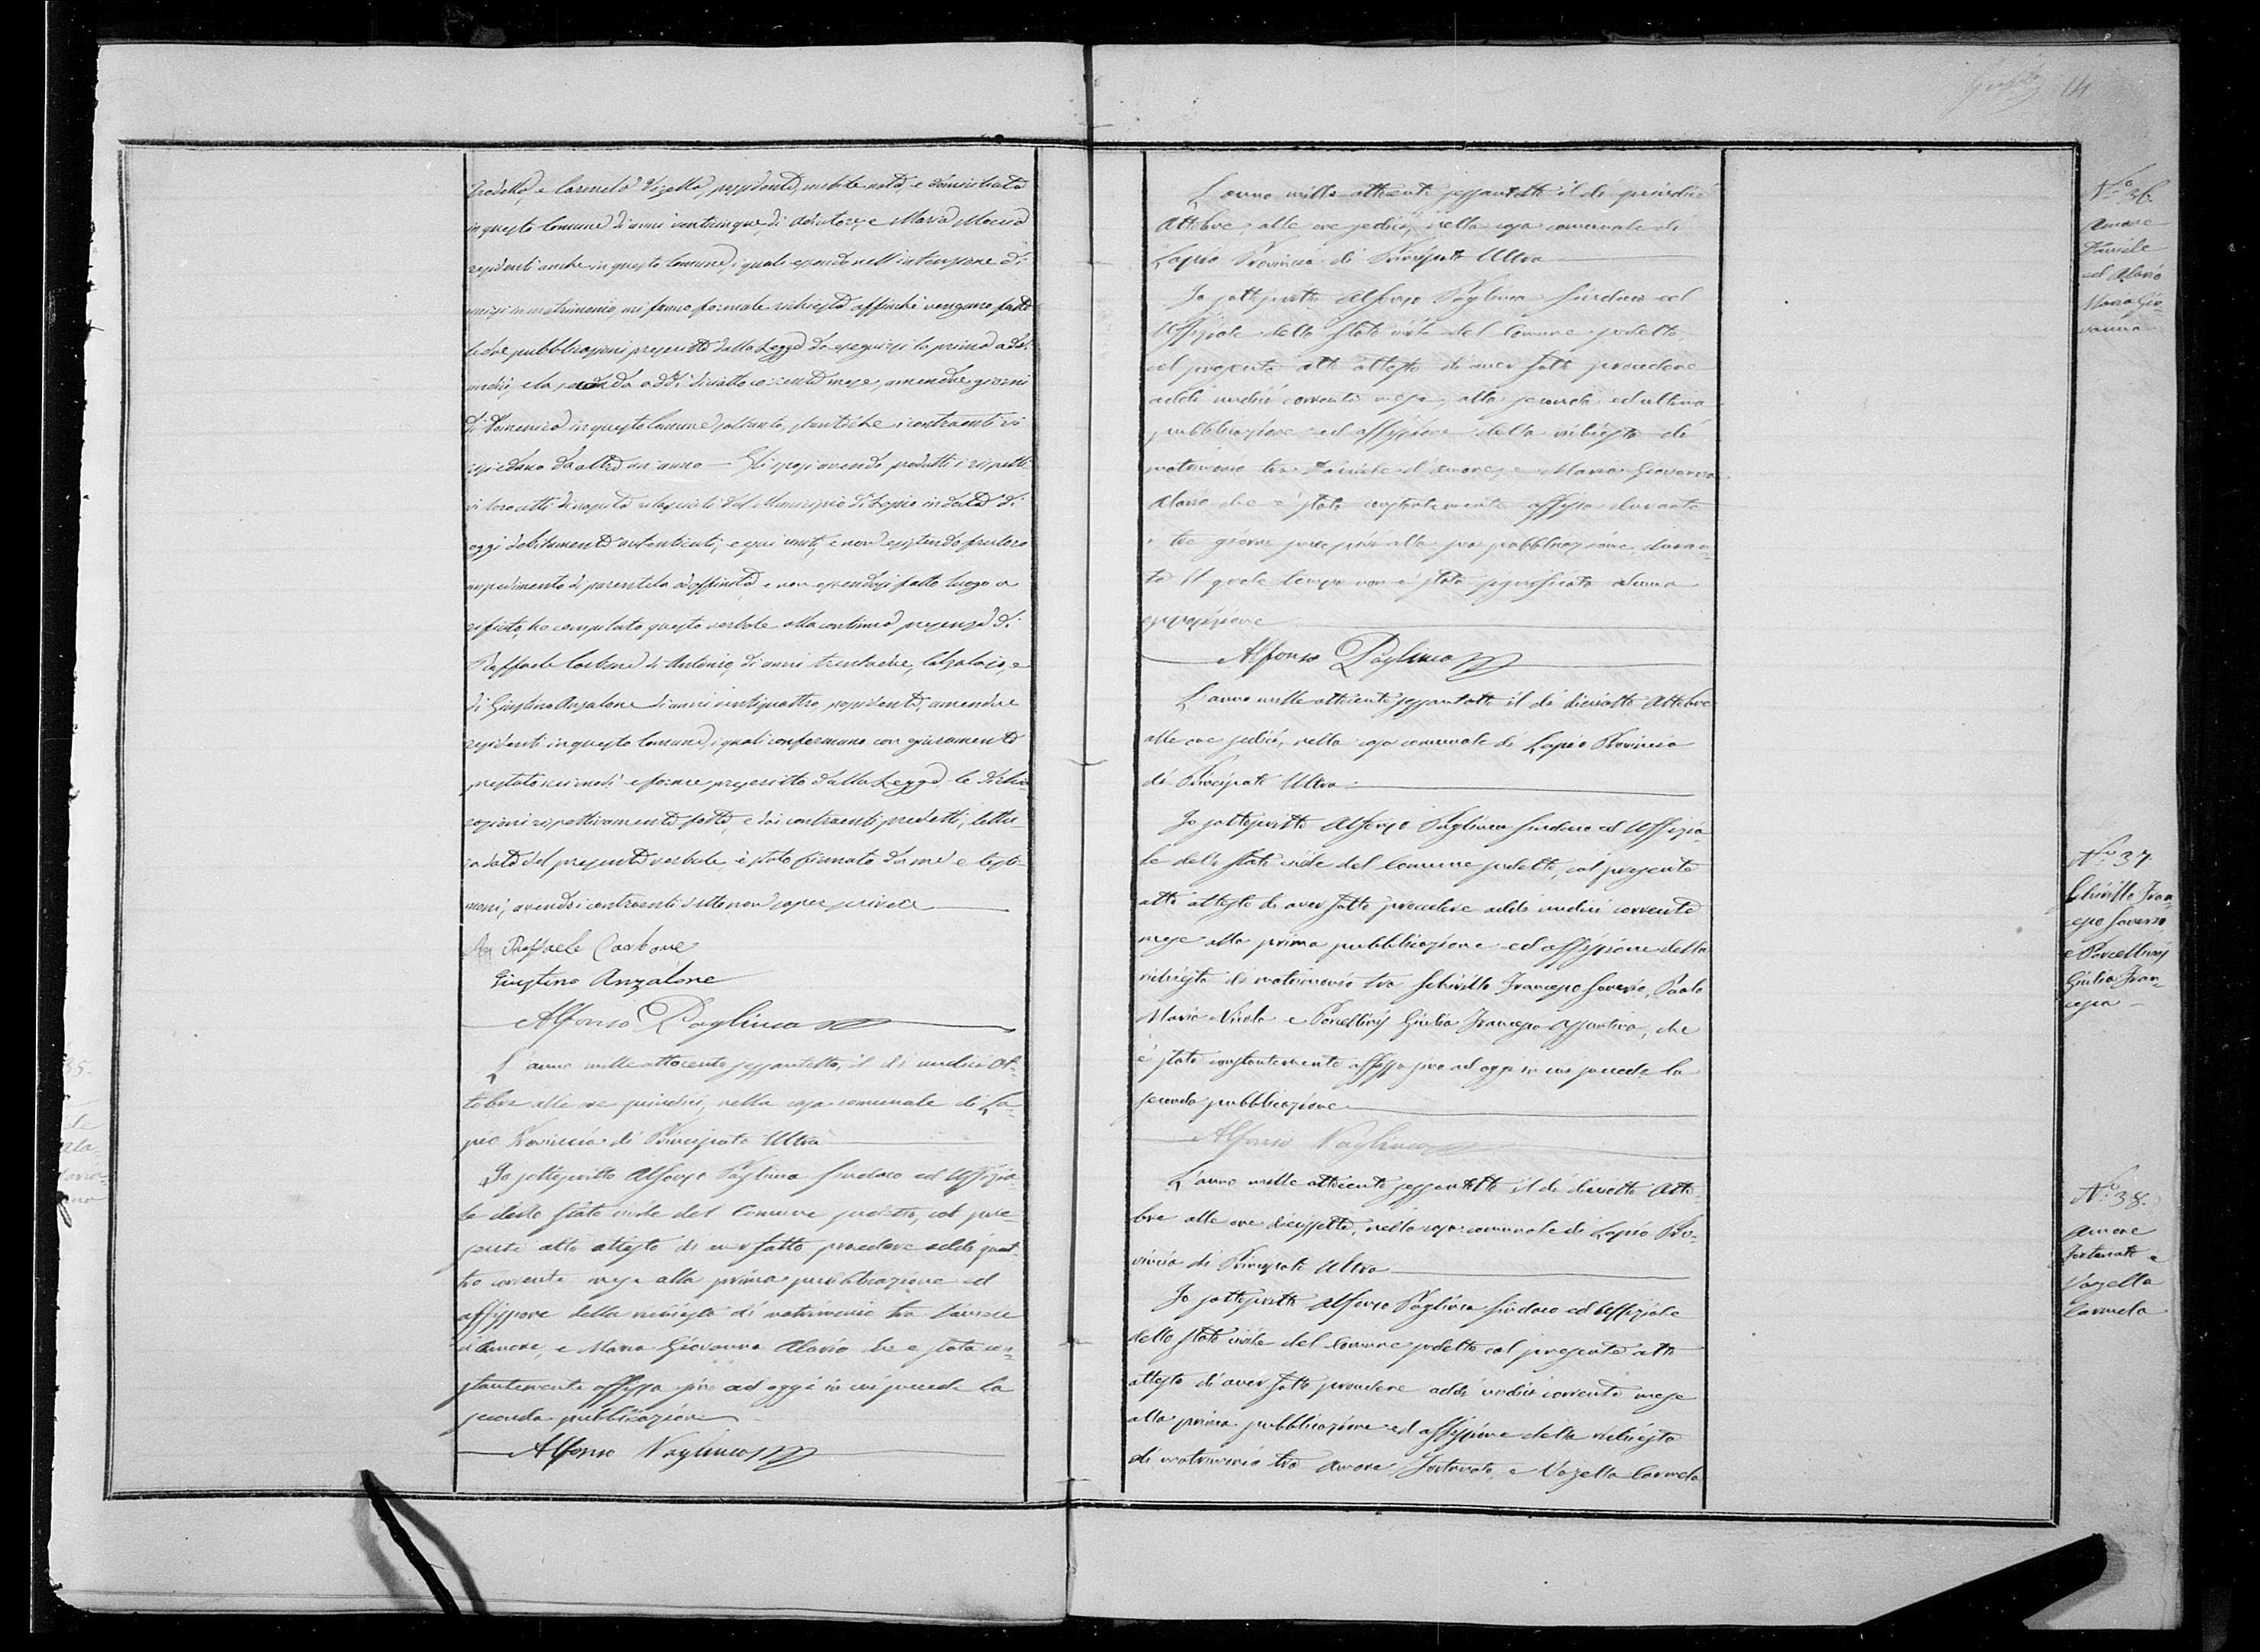 predetto, e Carmela Vozella, possidente, nubile nata, e domiciliata
in questo Comune di anni venticinque, di Salvatore, e Maria
residenti anche in questo Comune, i quali essendo nell'intenzione di
unirsi in matrimonio, mi fanno formale richiesta affinché vengano fatte
le due pubblicazioni prescritte dalla Legge da eseguirsi la prima addì
undici, e la seconda addì diciotto corrente mese, amendue giorni
di Domenica in questo Comune soltanto, stanteché i contraenti vi
risiedono da oltre un anno — Gli sposi avendo prodotti i rispetti-
vi loro atti di nascita rilasciati dal Municipio di Lapio in data di
oggi debitamente autenticati, e qui uniti, e non esistendo fra loro
impedimento di parentela o affinità, e non essendosi fatto luogo a
rifiuto, ho compilato questo verbale alla continua presenza di
Raffaele Carbone di Antonio, di anni trentatre, Calzolaio, e
di Giustino Anzalone di anni ventiquattro, possidente, amendue
residenti in questo Comune, i quali confermano con giuramento
prestato nei modi e forme prescritte dalla Legge le dichia-
razioni rispettivamente fatte, e dai contraenti predetti, lettu-
ra data del presente verbale, è stato firmato da me e testi-
moni, avendo i contraenti detto non saper scrivere
Raffaele Carbone
Giustino Anzalone
Alfonso Paglinca
L'anno mille ottocento sessantotto, il dì undici Ot-
tobre alle ore quindici, nella casa comunale di La-
pio Provincia di Principato Ultra
Io sottoscritto Alfonso Paglinca Sindaco ed Uffizia-
le dello Stato civile del Comune predetto, col pre-
sente atto attesto di aver fatto procedere addì quat-
tro corrente mese alla prima pubblicazione ed
affissione della richiesta di matrimonio tra Daniele
d'Amore, e Maria Giovanna Alario che è stata con-
stantemente affissa sino ad oggi in cui succede la
seconda pubblicazione
Alfonso Paglinca
14
L'anno mille ottocento sessantotto il dì quindici
Ottobre, alle ore sedici, nella casa comunale di
Lapio Provincia di Principato Ultra
Io sottoscritto Alfonso Paglinca Sindaco ed
Uffiziale dello Stato civile del Comune predetto,
col presente atto attesto di aver fatto procedere
addì undici corrente mese, alla seconda ed ultima
pubblicazione ed affissione della richiesta di
matrimonio tra Daniele d'Amore, e Maria Giovanna
Alario che è stata constantemente affissa durante
i tre giorni successivi alla sua pubblicazione, duran-
te il quale tempo non è stata significata alcuna
opposizione
Alfonso Paglinca
L'anno mille ottocento sessantotto il dì diciotto Ottobre
alle ore sedici, nella casa comunale di Lapio Provincia
di Principato Ultra
Io sottoscritto Alfonso Paglinca Sindaco ed Uffizia-
le dello Stato civile del Comune predetto, col presente
atto attesto di aver fatto procedere addì undici corrente
mese alla prima pubblicazione ed affissione della
richiesta di matrimonio tra Schirillo Francesco Saverio, Paolo
Maria Nicola e Porcellinis Giulia Francesca, che
è stata constantemente affissa sino ad oggi in cui succede la
seconda pubblicazione
Alfonso Paglinca
L'anno mille ottocento sessantotto il dì diciotto Otto-
bre alle ore diciassette, nella casa comunale di Lapio Pro-
vincia di Principato Ultra
Io sottoscritto Alfonso Paglinca Sindaco ed Uffiziale
dello Stato civile del Comune predetto col presente atto
attesto di aver fatto procedere addì undici corrente mese
alla prima pubblicazione ed affissione della richiesta
di matrimonio tra Amore Fortunato, e Vozella Carmela
N.° 36.
Amore
Daniele
ed Alario
Maria Gio-
vanna
N.° 37.
Schirillo Fran-
cesco Saverio
e Porcellinis
Giulia Fran-
cesca
N.° 38.
Amore
Fortunato e
Vozella
Carmela